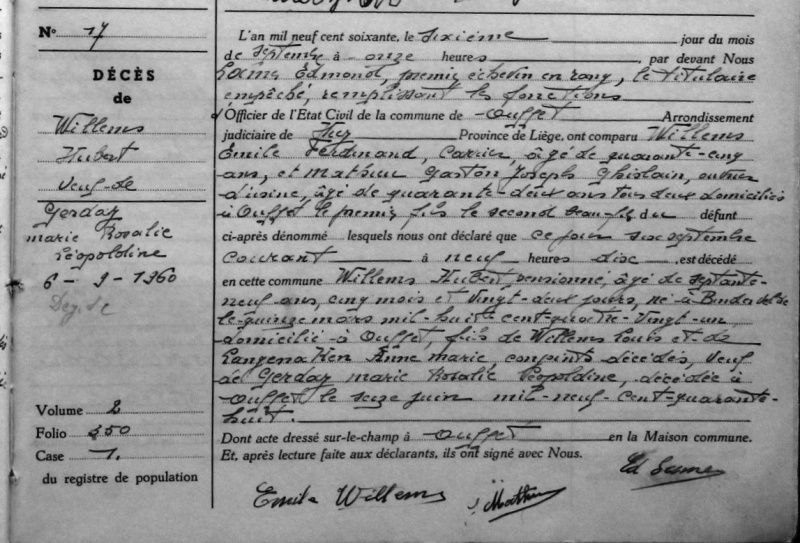 N° 17
DÉCÈS
de
Willems
Hubert
veuf-de
Gerday
marie Rosalie
Léopoldine
6 - 9 - 1960
Volume 2
Folio 550
Case 1.
du registre de population
L'an mil neuf cent soixante, le sixième jour du mois
de septembre à onze heures, par devant Nous
Edmond, premier échevin en rang, le titulaire
empêché, remplissant les fonctions
d'Officier de l'Etat Civil de la commune de Ouffet Arrondissement
judiciaire de Huy Province de Liège, ont comparu Willems
Emile Ferdinand, carrier, âgé de quarante-cinq
ans, et Mathieu Gaston Joseph Ghislain, ouvrier
d'usine, âgé de quarante-deux ans tous deux domiciliés
à Ouffet le premier fils le second beau-fils du défunt
ci-après dénommé lesquels nous ont déclaré que ce jour six septembre
courant à neuf heures dix, est décédé
en cette commune Willems Hubert, pensionné, âgé de septante-
neuf ans, cinq mois et vingt-deux jours, né à
le quinze mars mil-huit-cent-quatre-vingt-un
domicilié à Ouffet, fils de Willems Louis et de
Anne marie, conjoints décédés, veuf
de Gerday marie Rosalie Léopoldine, décédée à
Ouffet le seize juin mil-neuf-cent-quarante-
huit.
Dont acte dressé sur-le-champ à Ouffet en la Maison commune.
Et, après lecture faite aux déclarants, ils ont signé avec Nous.
Emile Willems